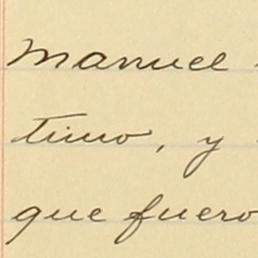 Manuel
timo, y
que fuero